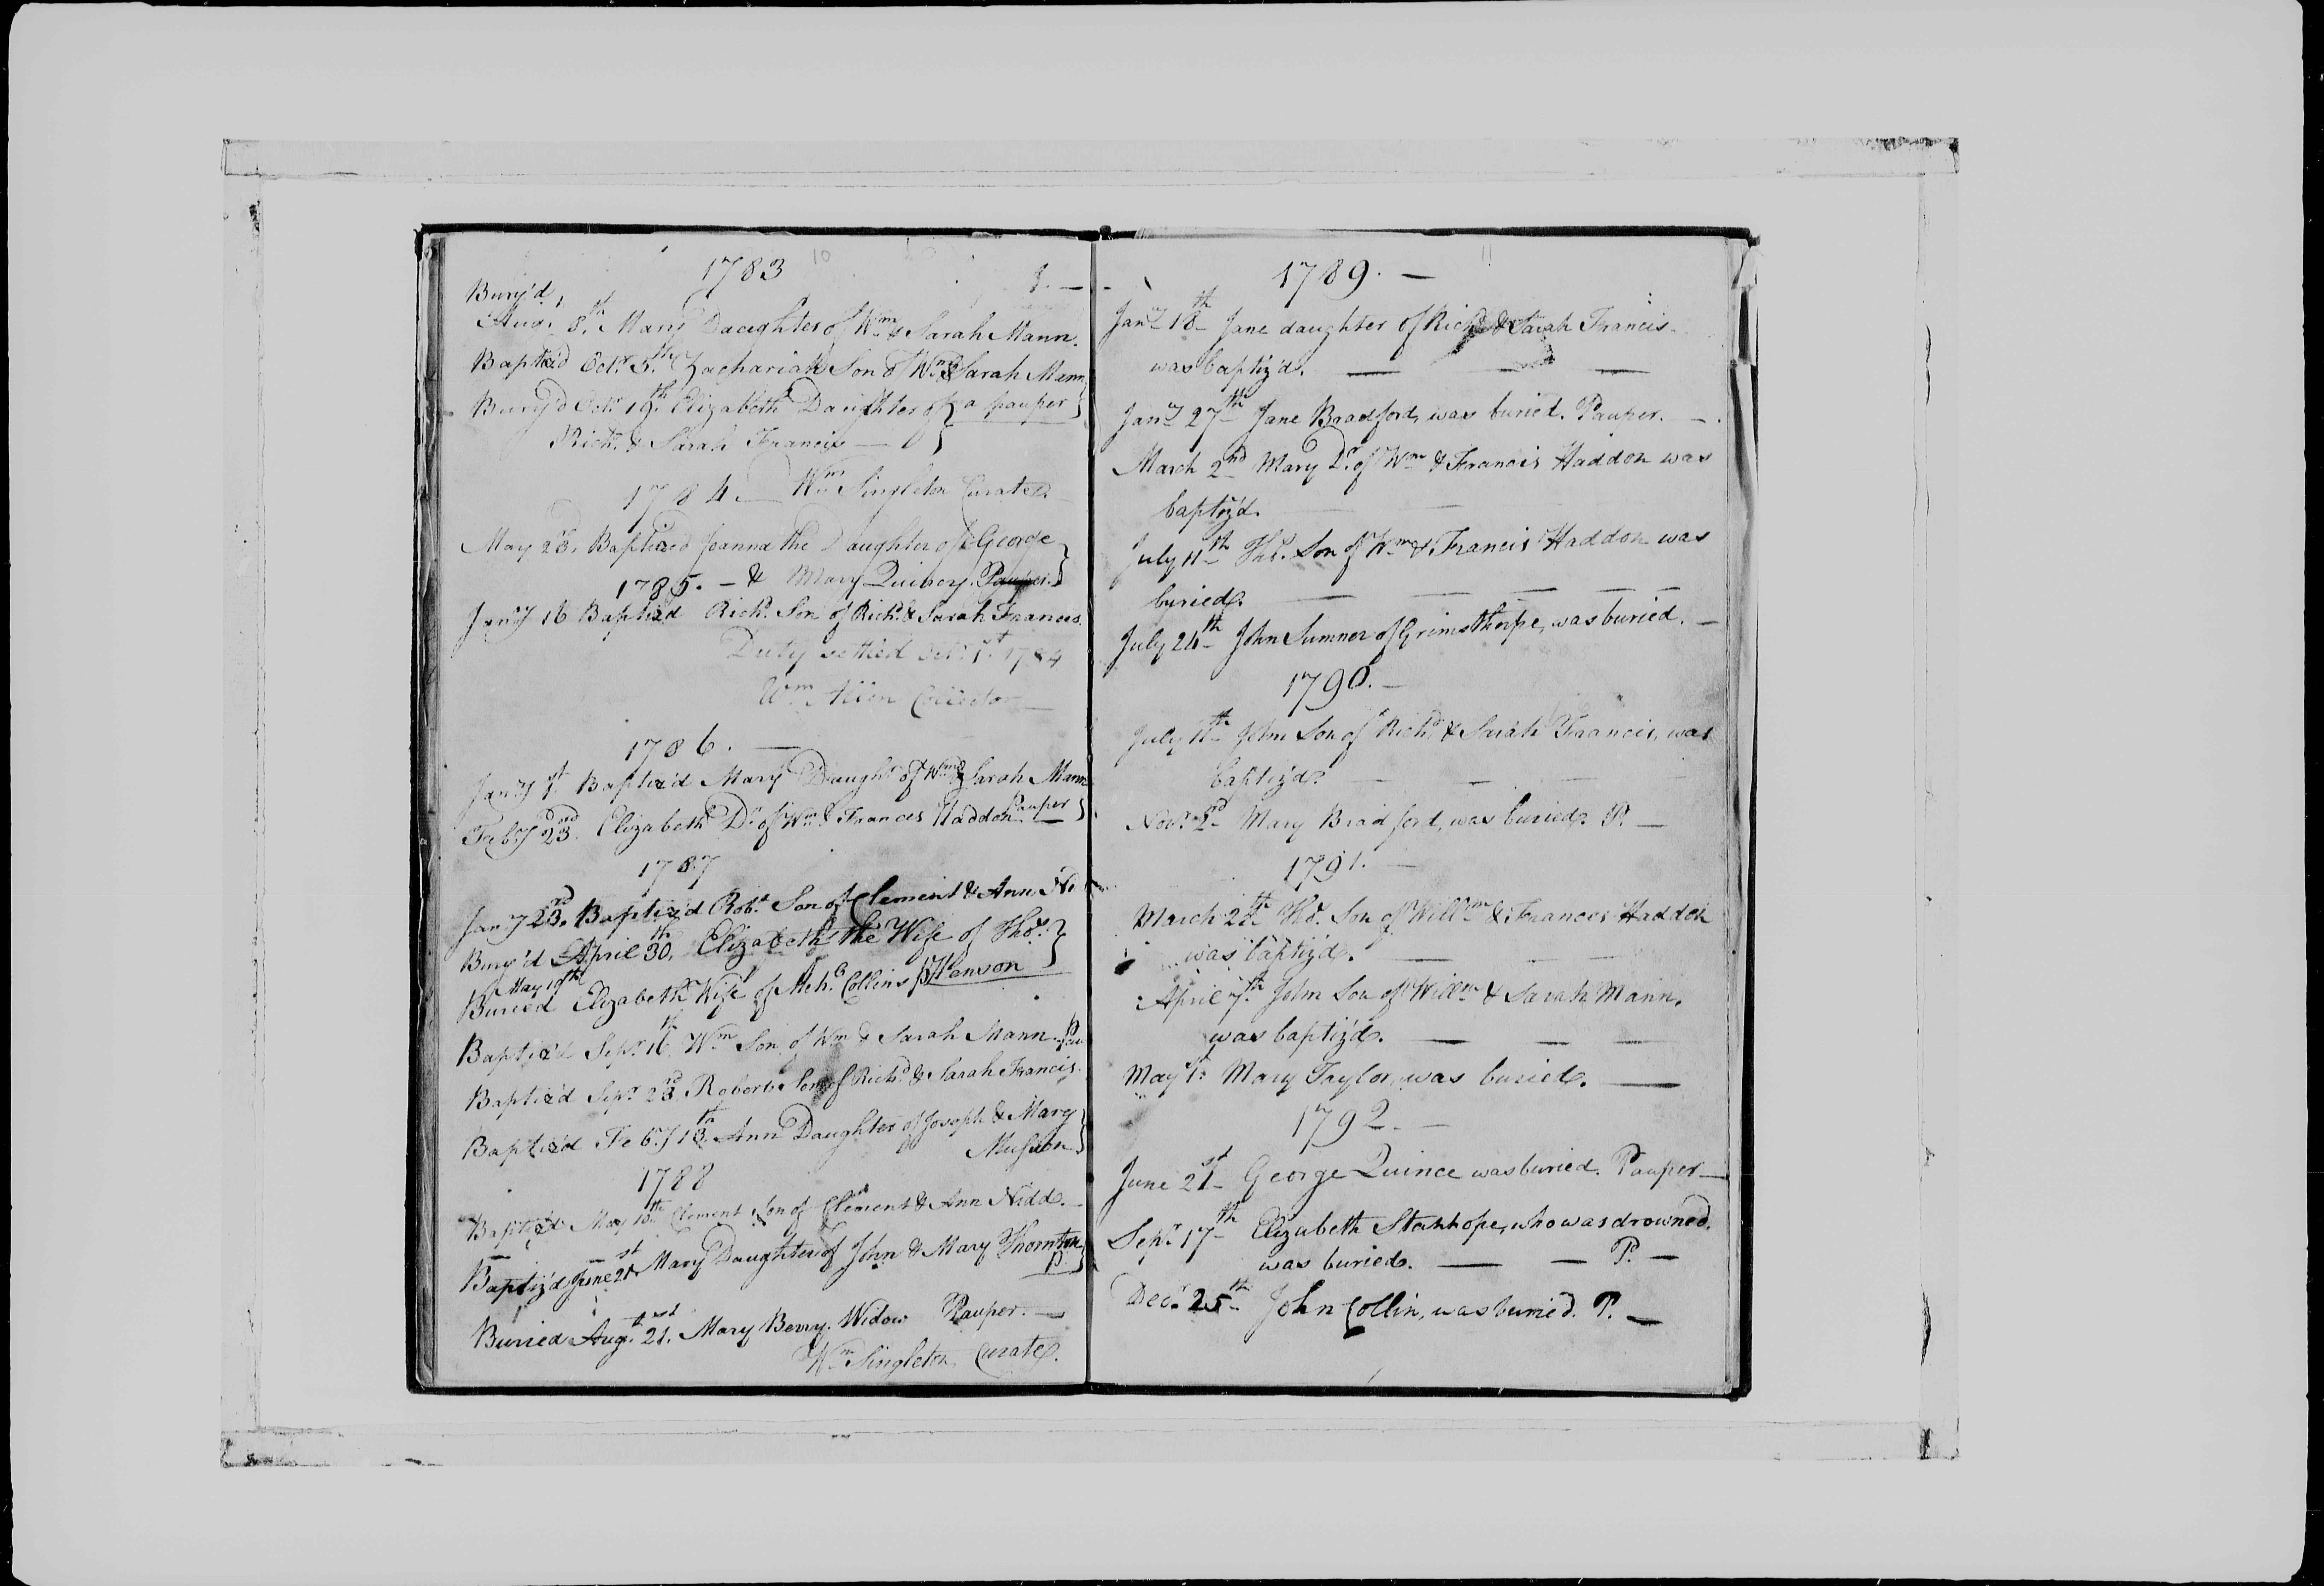 10
1783
Bury'd
Aug. 8th Mary Daughter of Wm & Sarah Mann.
Baptiz'd Octr 5th Zachariah Son of Wm & Sarah Mann
Bury'd Octr 19th Elizabeth Daughter of } a pauper }
Richd & Sarah Francis — }
1784. — Wm Singleton Curate
May 23. Baptized Joanna the Daughter of George }
1785. — & Mary Quincy. Pauper. }
Jany 16 Baptizd Richd Son of Richd & Sarah Frances.
Duty settled Octr 1st 1784
Wm Allen Collector —
1786. —
Jany 1st Baptiz'd Mary Daughr of Wm & Sarah Mann
Feby 23rd Elizabeth Dr of Wm & Frances Haddon Pauper }
1787
Jany 23rd Baptiz'd Robt Son of Clement & Ann
Bury'd April 30th, Elizabeth the Wife of Thos }
May 10th
Buried Elizabeth Wife of Collins } Henson
Baptiz'd Sepr 16th Wm Son of Wm & Sarah Mann
Baptiz'd Sepr 23rd Robert Son of Richd & Sarah Francis.
Baptiz'd Feby 13th Ann Daughter of Joseph & Mary }
Musson }
1788
Baptiz'd May 10th Clement Son of Clement & Ann Nidd. —
Baptiz'd June 21st Mary Daughter of John & Mary Thornton }
P. }
Buried Augt 21st. Mary Berry. Widow Pauper. —
Wm Singleton, Curate.
11
1789. —
Jany 18th Jane daughter of Richd & Sarah Francis
was baptiz'd. — — —
Jany 27th Jane Bradford, was buried. Pauper. —
March 2nd Mary Dr of Wm & Francis Haddon was
baptiz'd.
July 11th Thos. Son of Wm & Francis Haddon was
buried. — — — — —
July 24th John Sumner of Grimsthorpe, was buried. —
1790. —
July 11th John Son of Richd & Sarah Francis, was
baptiz'd. — — — —
Novr 2d Mary Bradford, was buried. P. —
1791. —
March 28th Thos. Son of Willm & Frances Haddon
was baptiz'd. — — —
April 7th John Son of Willm & Sarah Mann,
was baptiz'd. — — —
May 1st Mary Taylor, was buried. —
1792. —
June 21st George Quince was buried. Pauper —
Sepr 17th Elizabeth Stanhope, who was drowned,
was buried. — — P. —
Decr 25th John Collin, was buried. P. —